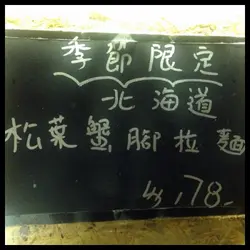 季節限定
北海道
松葉蟹腳拉麵
78.